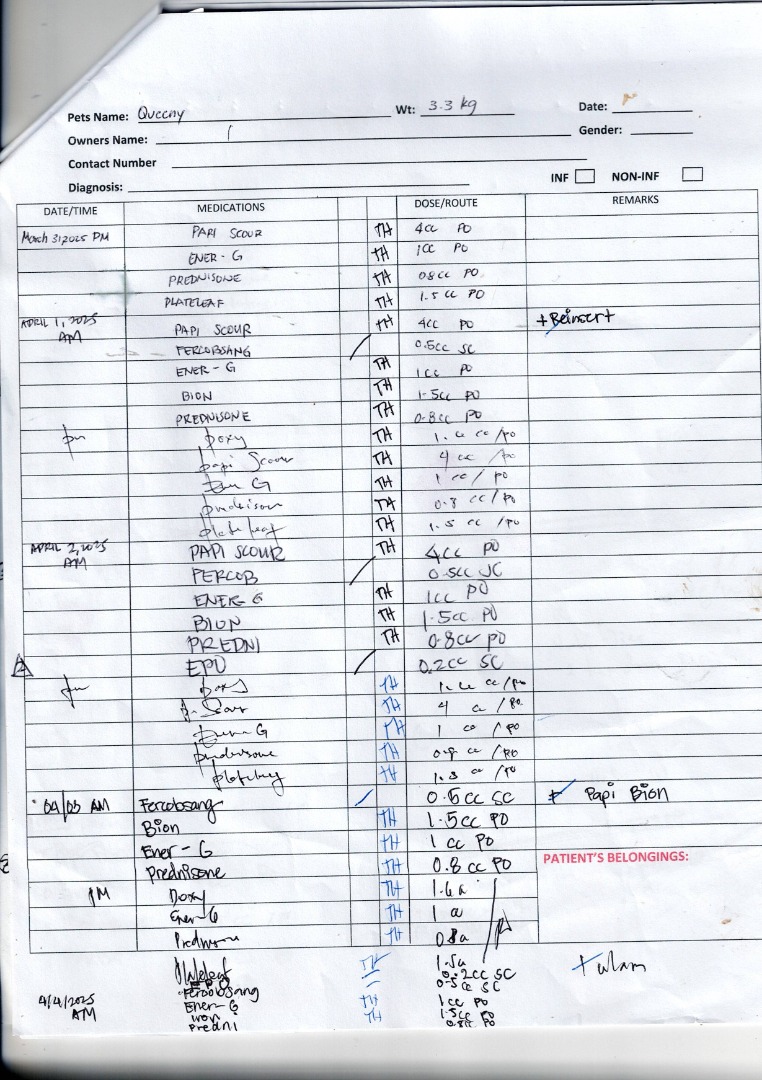 Pets Name: Queeny Wt: 3.3 kg Date:
Owners Name: Gender:
Contact Number
Diagnosis: INF NON-INF
DATE/TIME MEDICATIONS DOSE/ROUTE REMARKS
March 31, 2025 PM PAPI SCOUR TH 4cc PO
ENER-G TH 1cc PO
PREDNISONE TH 0.8cc PO
PLATELEAF TH 1.5cc PO
APRIL 1, 2025 AM PAPI SCOUR TH 4cc PO + Beinsert
FERCOBSANG 0.5cc SC
ENER-G TH 1cc PO
BION TH 1.5cc PO
PREDNISONE TH 0.8cc PO
pm Doxy TH 1.6 cc/po
papi Scour TH 4 cc/po
Ener G TH 1 cc/po
prednison TH 0.8 cc/po
plateleaf TH 1.5 cc/po
APRIL 2, 2025 AM PAPI SCOUR TH 4cc PO
FERCOB 0.5cc SC
ENER-G TH 1cc PO
BION 1.5cc PO
PREDNI TH 0.8cc PO
EPO 0.2cc SC
pm Doxy TH 1.6 cc/po
p. Scour TH 4 cc/po
Ener G TH 1 cc/po
prednisone TH 0.8 cc/po
TH 1.5 cc/po
04/03 AM Fercobsang 0.5cc SC Papi Bion
Bion TH 1.5cc PO
Ener-G TH 1 cc PO
Prednisone TH 0.8 cc PO PATIENT'S BELONGINGS:
PM Doxy TH 1.6cc
Ener-G TH 1 cc
Prednisone TH 0.8cc
Plateleaf TH 1.5cc + ulam
EPO 0.2cc SC
Fercobsang 0.5cc SC
4/4/2025 AM Ener-G TH 1cc PO
TH 1.5cc PO
Predni 0.8cc PO